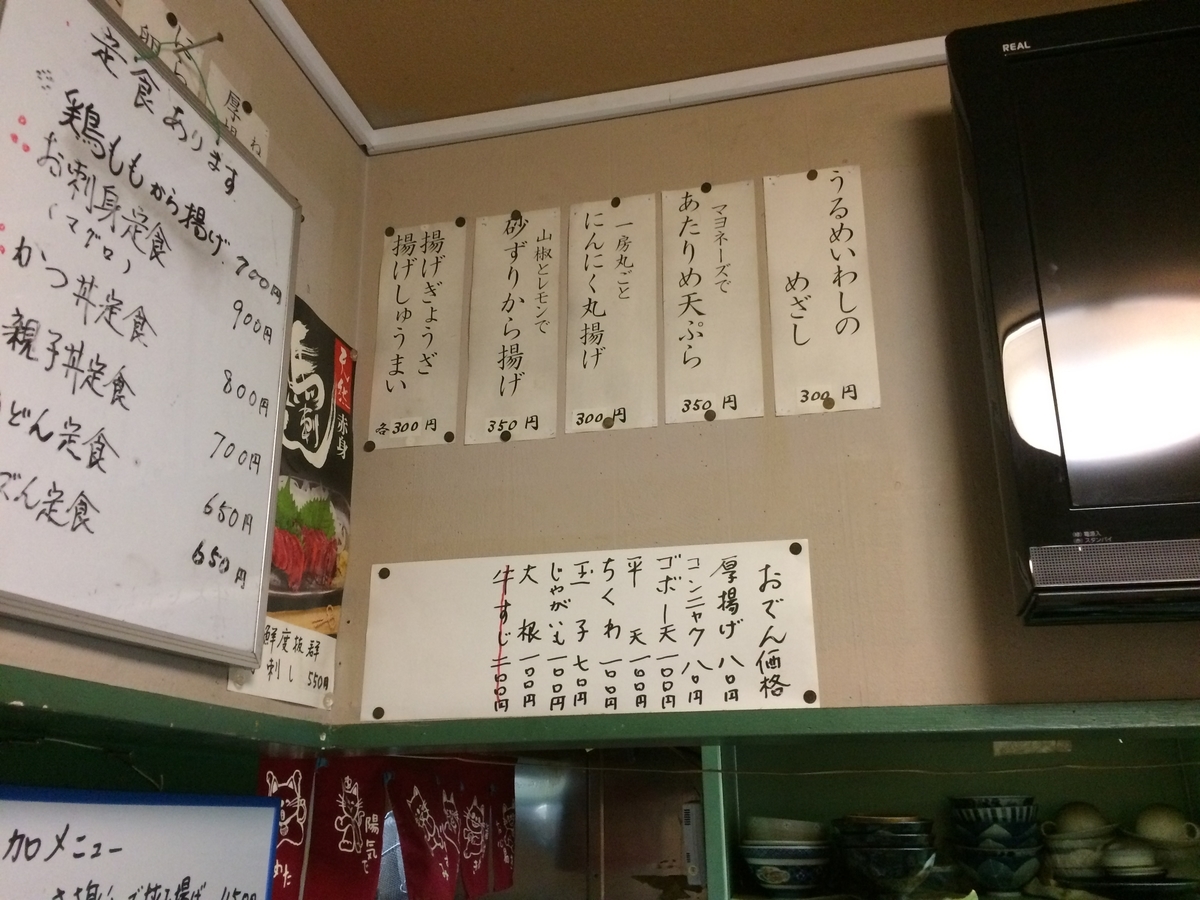 定食あります
鶏ももから揚げ 700円
お刺身定食 900円
(マグロ)
かつ丼定食 800円
親子丼定食 700円
どん定食 650円
定食 650円
うるめいわしの
めざし
300円
マヨネーズで
あたりめ天ぷら
350円
一房丸ごと
にんにく丸揚げ
300円
山椒とレモンで
砂ずりから揚げ
350円
揚げぎょうざ
揚げしゅうまい
各300円
REAL
赤身
鮮度抜群
刺し 550円
おでん価格
厚揚げ 八〇円
コンニャク 八〇円
ゴボー天 一〇〇円
平天 一〇〇円
ちくわ 一〇〇円
玉子 七〇円
じゃがいも 一〇〇円
大根 一〇〇円
牛すじ 二〇〇円
陽気で
加メニュー